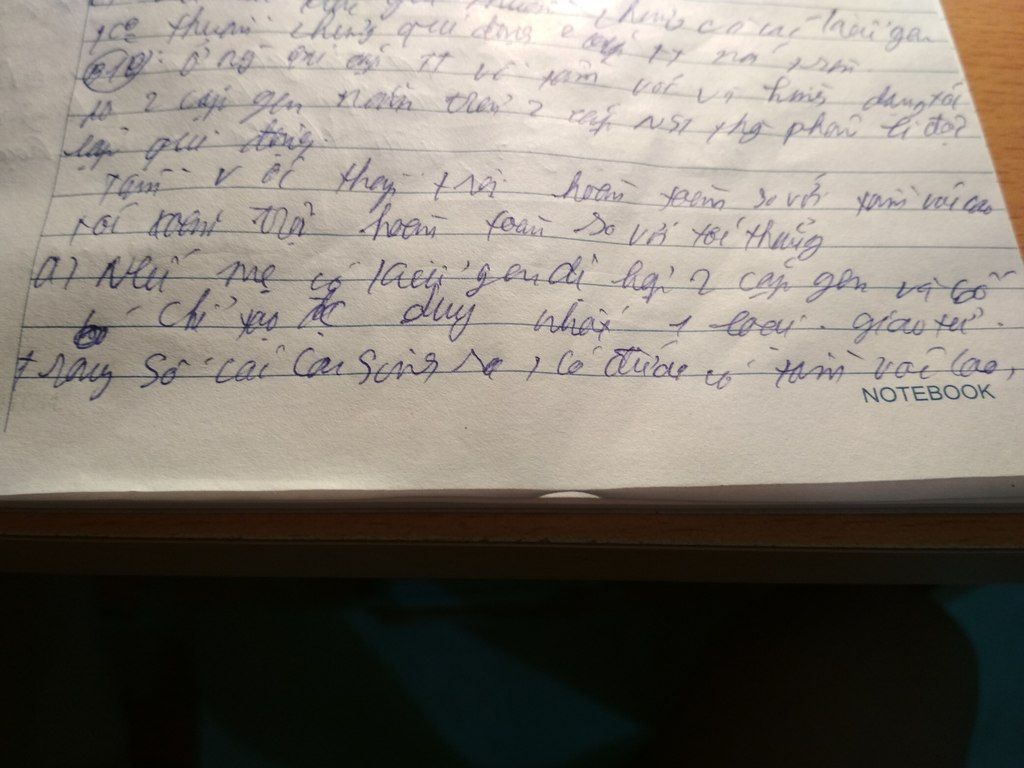 thuần chủng có các loại gen
thuần chủng qui định 2 cặp tt nói trên
B10: Ở người cặp tt về tầm vóc và hình dạng tóc
do 2 cặp gen nằm trên 2 cặp NST thg phân li độc
lập qui định.
Tầm vóc thấp trội hoàn toàn so với tầm vóc cao
tóc xoăn trội hoàn toàn so với tóc thẳng
a) Nếu mẹ có kiểu gen dị hợp 2 cặp gen và bố
chỉ tạo đc duy nhất 1 loại giao tử.
trong số các con sinh ra, có đứa có tầm vóc cao,
NOTEBOOK